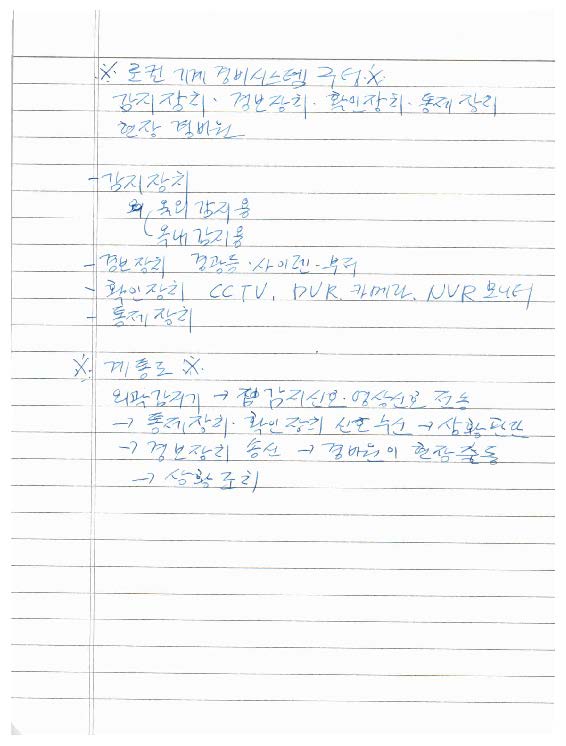 ※ 로컬 기계경비시스템 구성 ※
감지장치 · 경보장치 · 확인장치 · 통제장치
현장 경비원
- 감지장치
옥외 감지용
옥내 감지용
- 경보장치 경광등 · 사이렌 · 부저
- 확인장치 CCTV, DVR. 카메라, NVR 모니터
- 통제장치
※ 계통도 ※
외곽감지기 → 감지신호 · 영상신호 전송
→ 통제장치 · 확인장치 신호수신 → 상황판단
→ 경보장치 송신 → 경비원이 현장출동
→ 상황조치